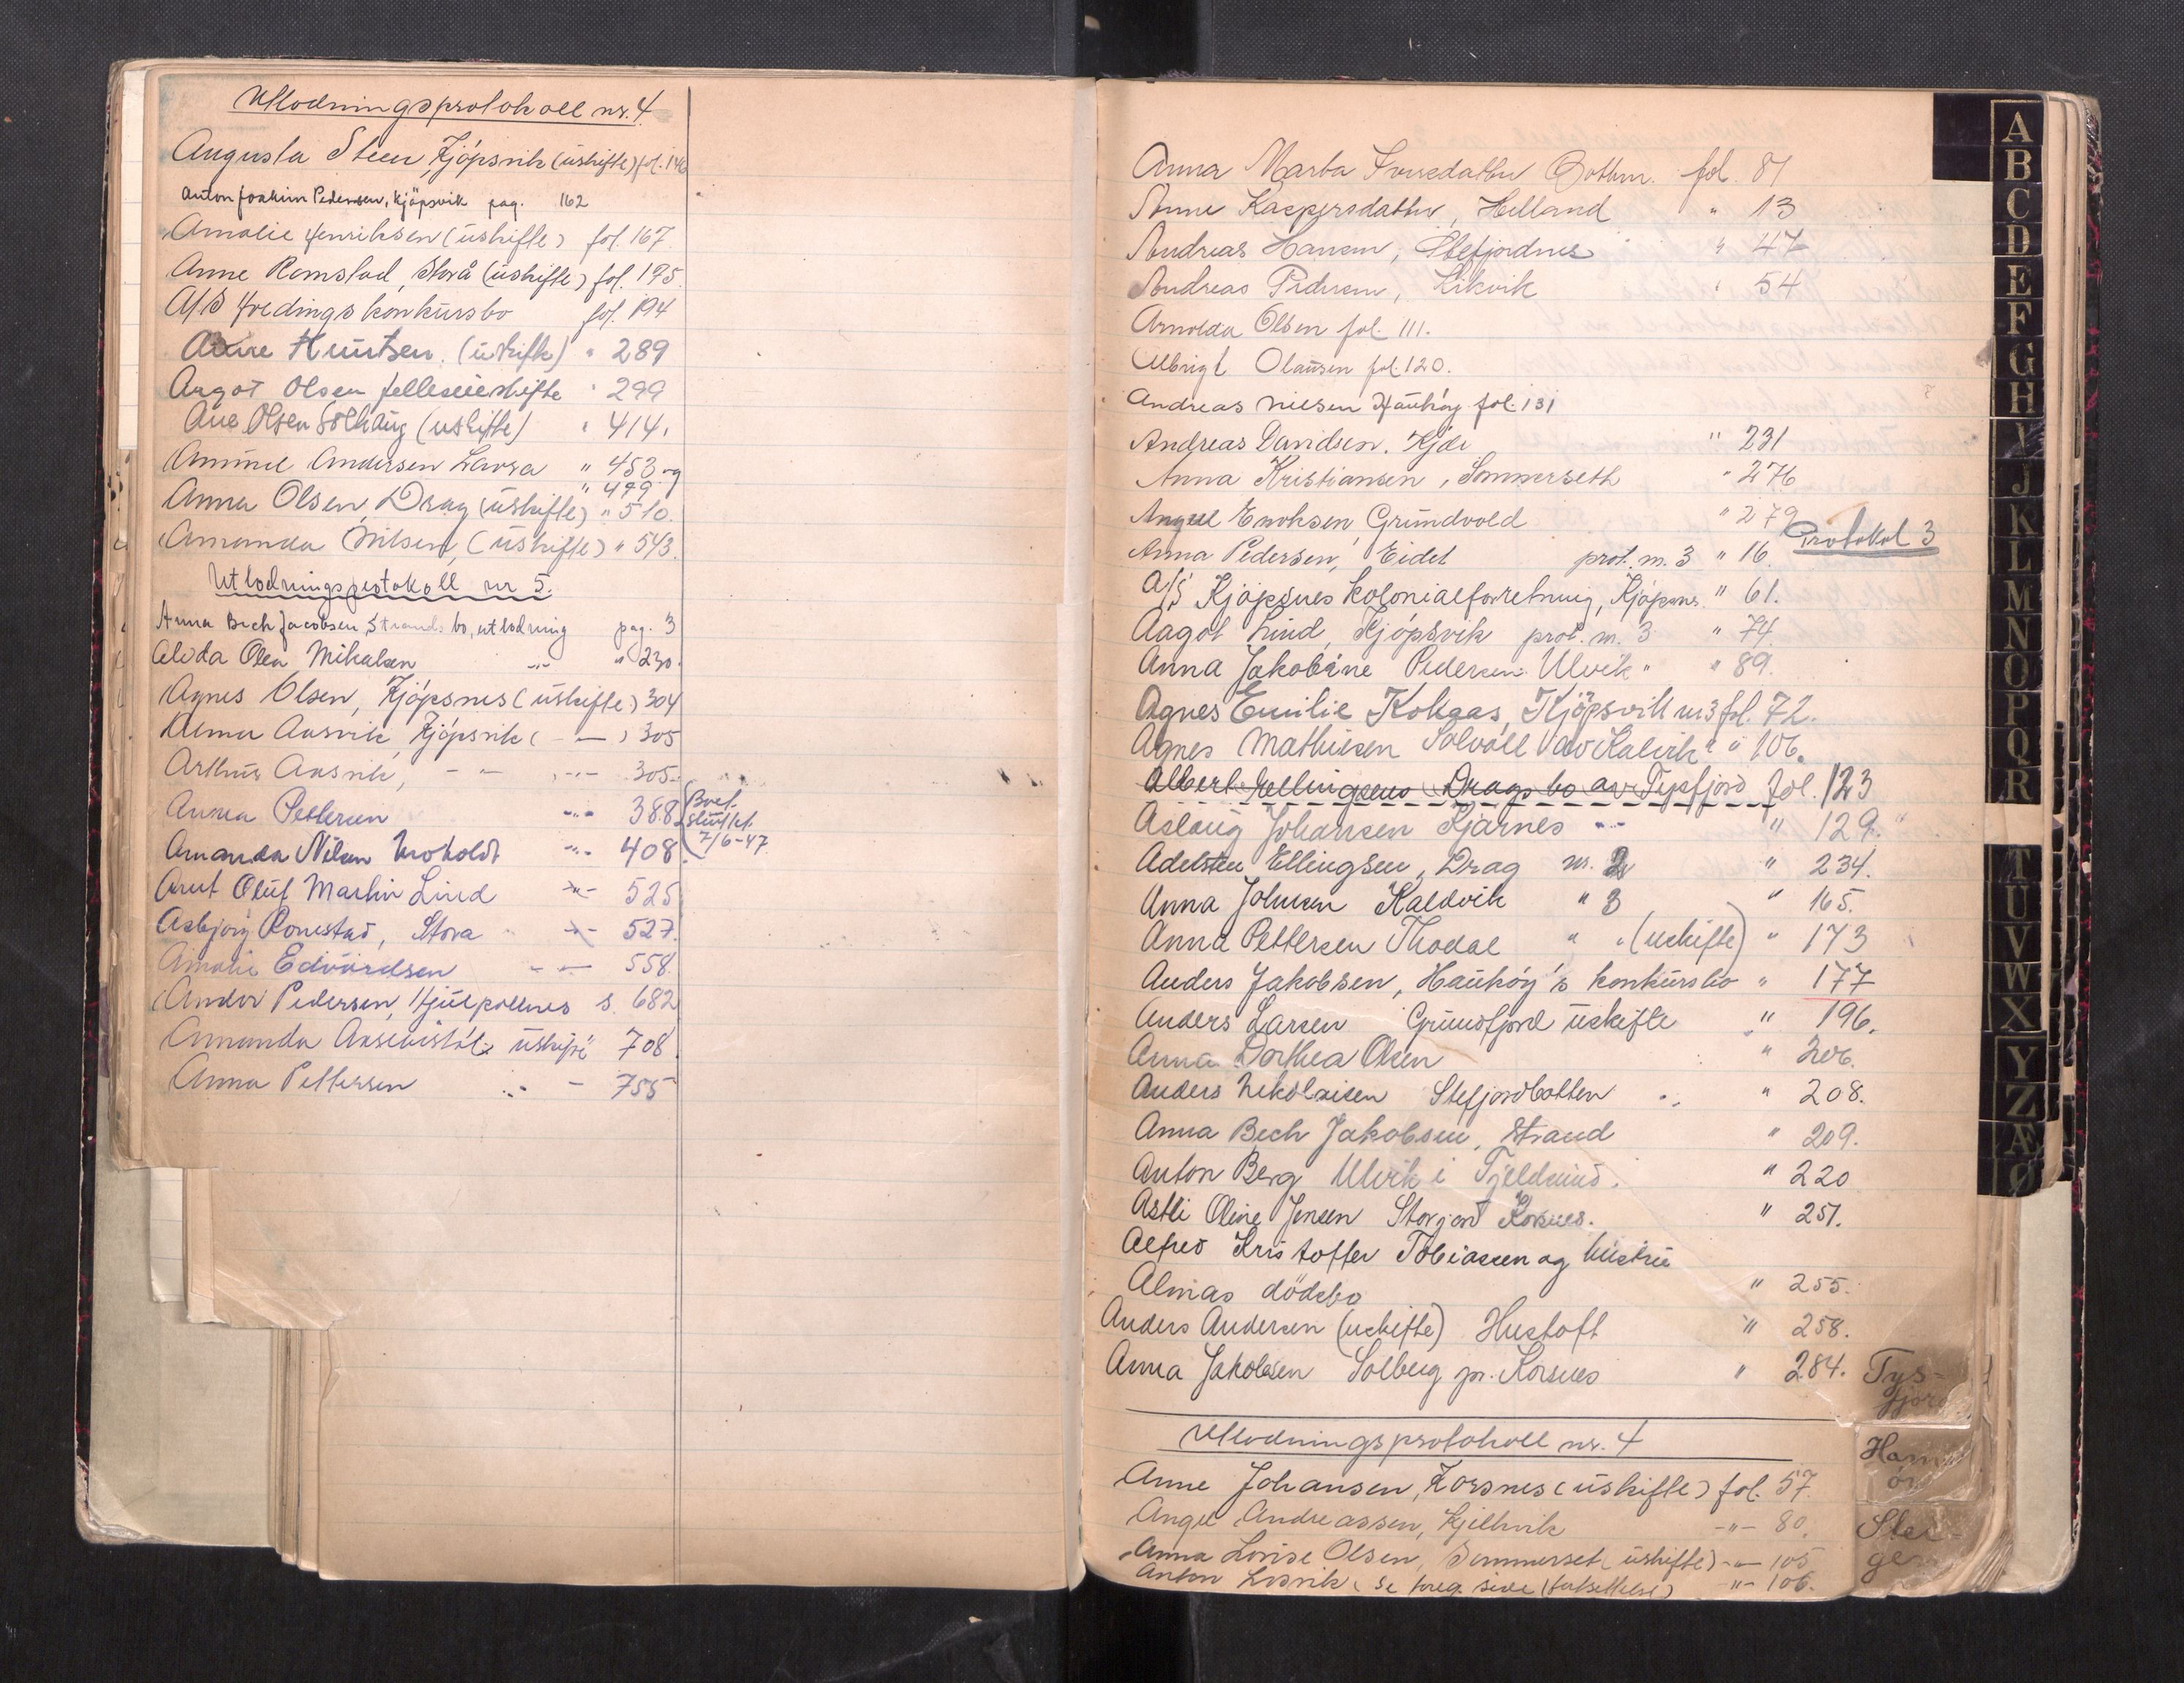 Utlodningsprotokoll nr. 4
Augusta Steen, Kjöpsvik (uskifte) fol. 146
Anton Joakim Pedersen, Kjöpsvik pag. 162
Amalie Henriksen (uskifte) fol. 167.
Anne Romstad, Storå (uskifte) fol. 195.
A/S Fredings konkursbo fol. 194
Anne Knutsen (uskifte) " 289
Aagot Olsen felleseieskifte " 299
Ane Olsen Solhaug (uskifte) " 414.
Andersen " 453 og
" 499
Anna Olsen, Drag (uskifte) " 510.
Amanda Nilsen, (uskifte) " 543.
Utlodningsprotokoll nr 5.
Anna Bech Jacobsen, Strands bo, utlodning pag. 3
Alvda Olea Mikalsen -"- " 230.
Agnes Olsen, Kjöpsnes (uskifte) 304
Alma Aasvik, Kjöpsvik ( -"- ) 305
Arthur Aasvik, - " - -"- 305.
Anna Pettersen -"- 388 Boet sluttet 7/6-47
Amanda Nilsen -"- 408
Arnt Oluf Martin Lind -"- 525
Asbjörg Romstad, Stora -"- 527.
Amalie Edvardsen -"- 558.
Andor Pedersen, Hjulpollnes s. 682
Amanda uskifte 708.
Anna Pettersen -"- 755
Anna Marta Botten. fol. 81
Anne Kaspersdatter, Helland " 13
Andreas Hansen, Stefjordnes " 47
Andreas Pedersen, Likvik " 54
Arnolda Olsen fol. 111.
Albrigt Olaussen fol. 120.
Andreas Nilsen Haukøy fol. 131
Andreas Davidsen, Kjær " 231
Anna Kristiansen, Sommerseth " 276
Angell Enoksen, Grundvold " 279
Protokol 3
Anna Pedersen, Eidet prot. nr. 3 " 16.
A/S Kjöpsnes kolonialforretning, Kjöpsnes " 61.
Aagot Lind, Kjöpsvik prot. nr. 3 " 74.
Anna Jakobine Pedersen Ulvik " " 89.
Agnes Emilie Kokaas, Kjöpsvik nr 3 fol. 72.
Agnes Mathisen Solvoll av Kalvik " " 106.
Albert Ellingsens Drags bo av Tysfjord fol. 123
Aslaug Johansen Kjærnes -"- " 129.
Adelsten Ellingsen, Drag nr. 2 " 234.
Anna Johnsen Kaldvik " 3 " 165.
Anna Pettersen Thodal " " (uskifte) " 173
Anders Jakobsen, Haukøy's konkursbo " 177
Anders Larsen Grundfjord uskifte " 196.
Anna Dorthea Olsen " 206.
Anders Nikolaisen Stefjordbotten " 208.
Anna Bech Jakobsen, Strand " 209.
Anton Berg Ulvik i Tjeldsund. " 220
Astli Oline Jensen Storjord Korsnes. " 251.
Alfred Kristoffer Tobiassen og hustru
Almas dödsbo " 255.
Anders Andersen (uskifte) Hustoft " 258.
Anna Jakobsen Solberg pr. Korsnes " 284.
Utlodningsprotokoll nr. 4
Anne Johansen, Korsnes (uskifte) fol. 57.
Angel Andreassen, Kjellvik -"- 80.
Anna Lovise Olsen, Sommerset (uskifte) -"- 105
Anton Losvik (se foreg. side (fortsettelse) -"- 106.
A
B
C
D
E
F
G
H
I
J
K
L
M
N
O
P
Q
R
T
U
V
W
X
Y
Z
Æ
Ø
Tys-
fjord
Ham
ör
Stei
gen